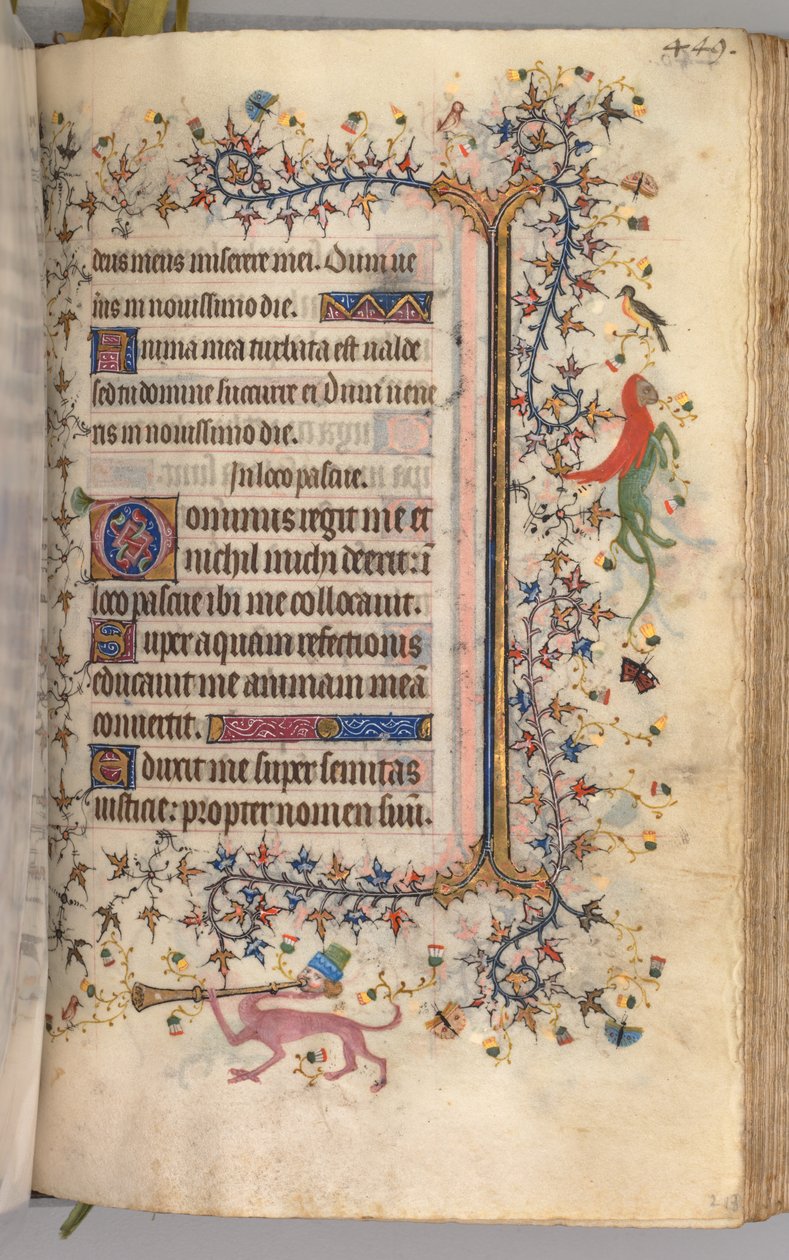 449.
deus meus miserere mei. Dum ue
n̄is in nouissimo die.
Anima mea turbata est ualde
sed tu domine succurre ei Dum uene
ris in nouissimo die.
In loco pascue.
Dominus regit me et
nichil michi deerit: ī
loco pascue ibi me collocauit.
Super aquam refectionis
educauit me animam meā
conuertit.
Eduxit me super semitas
iusticie: propter nomen suū.